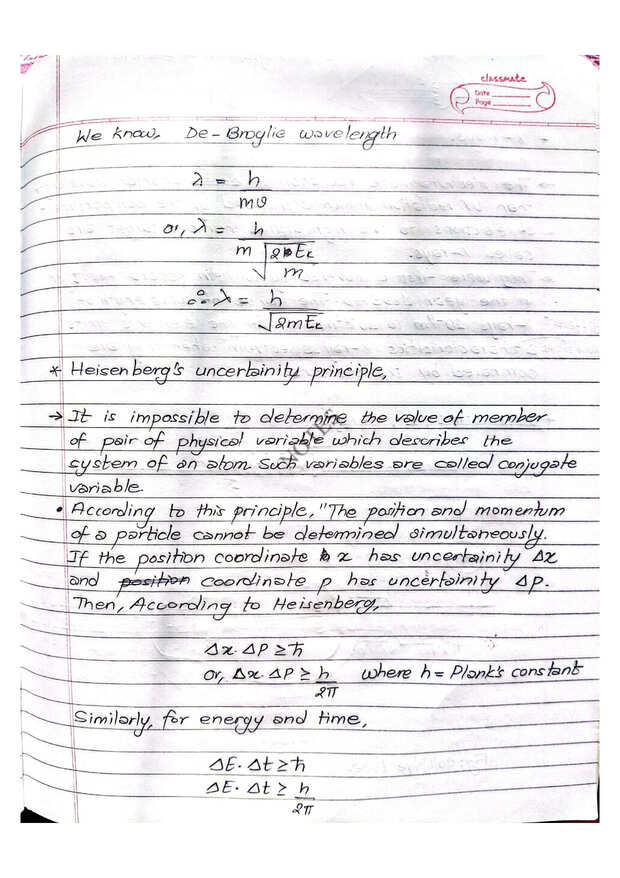 classmate
Date
Page
We know, De-Broglie wavelength
λ = h/mv
or, λ = h/(m√(2Eₖ/m))
∴ λ = h/√(2mEₖ)
* Heisenberg's uncertainity principle,
→ It is impossible to determine the value of member
of pair of physical variable which describes the
system of an atom. Such variables are called conjugate
variable.
• According to this principle, "The position and momentum
of a particle cannot be determined simultaneously.
If the position coordinate x has uncertainity Δx
and position coordinate p has uncertainity Δp.
Then, According to Heisenberg,
Δx. ΔP ≥ ħ
or, Δx. ΔP ≥ h/2π where h = Plank's constant
Similarly, for energy and time,
ΔE. Δt ≥ ħ
ΔE. Δt ≥ h/2π